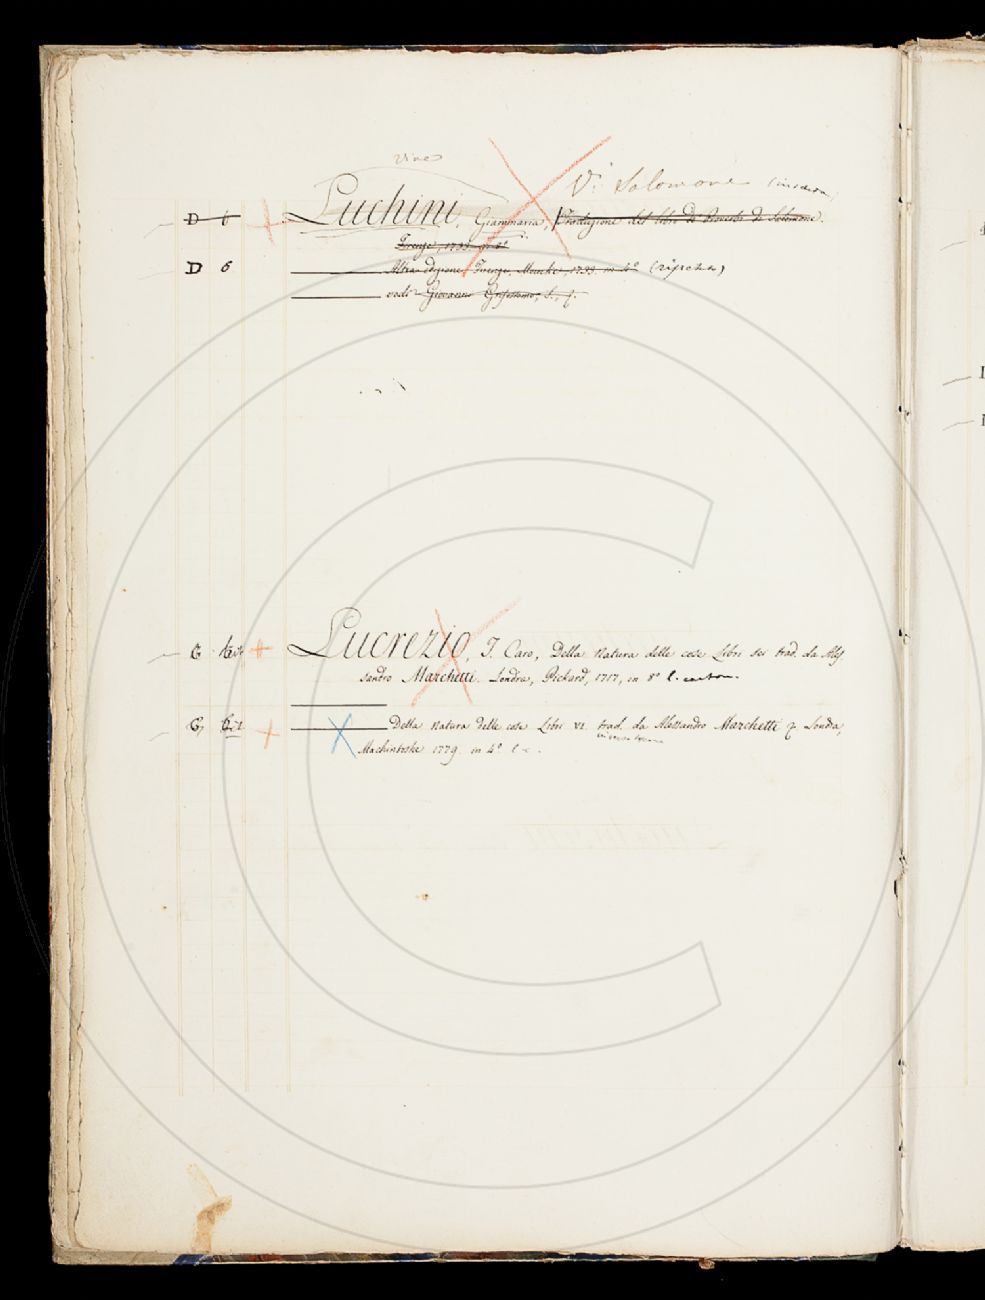 V. Salomone
D 6 Luchini, Giammaria, Traduzione del libro de' Proverbi di Salomone.
Firenze, 1733. in 8°
D 6 Altra edizione, Firenze, Moucke, 1733. in 4°
vedi Giovanni Grisostomo, S., f.
Lucrezio, T. Caro, Della Natura delle cose Libri sei trad. da Ales
sandro Marchetti. Londra, Pickard, 1717, in 8°
Della Natura delle cose Libri VI. trad. da Alessandro Marchetti Londra,
1779. in 4°